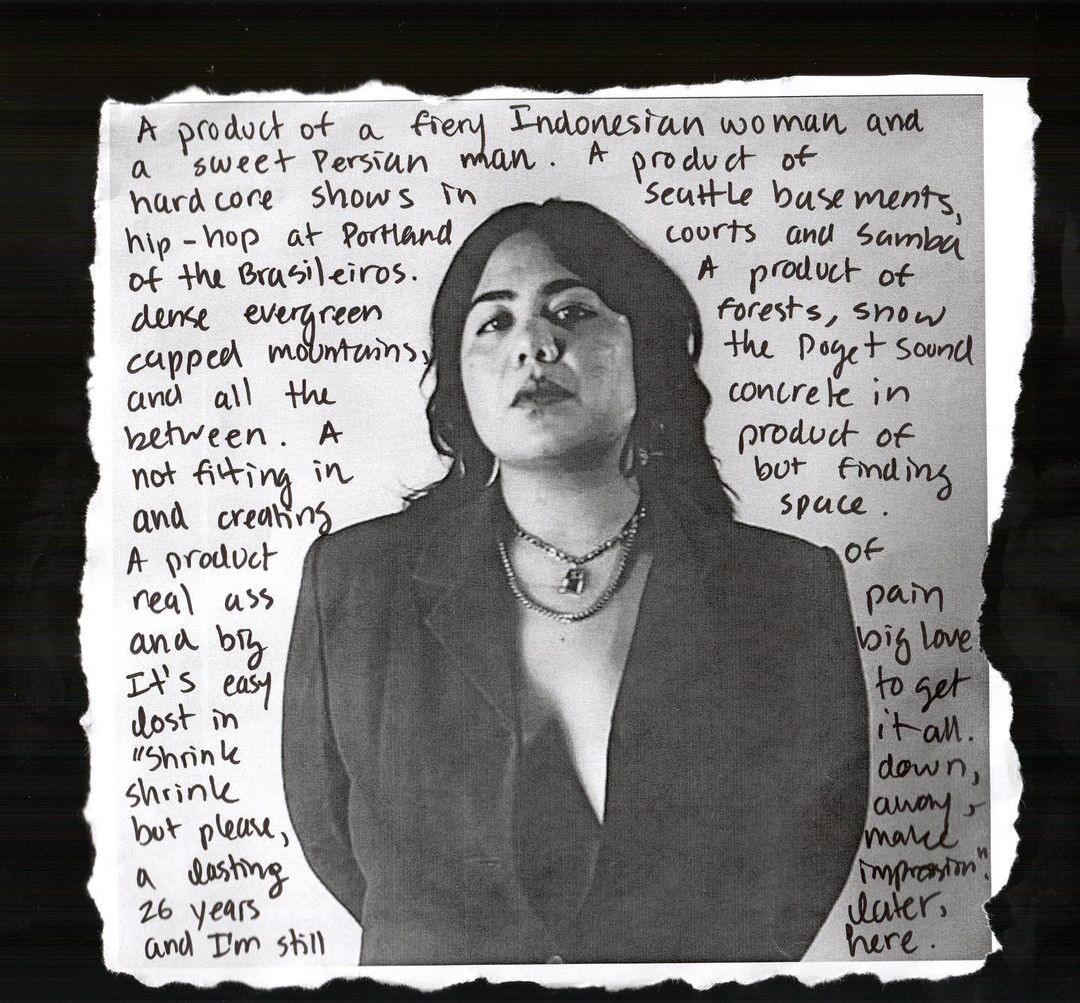 A product of a fiery Indonesian woman and
a sweet Persian man. A product of
hardcore shows in seattle basements,
hip-hop at Portland courts and samba
of the Brasileiros. A product of
dense evergreen forests, snow
capped mountains, the Puget sound
and all the concrete in
between. A product of
not fitting in but finding
and creating space.
A product of
real ass pain
and big big love
It's easy to get
lost in it all.
"Shrink down,
shrink away,
but please, make
a lasting impression".
26 years later,
and I'm still here.